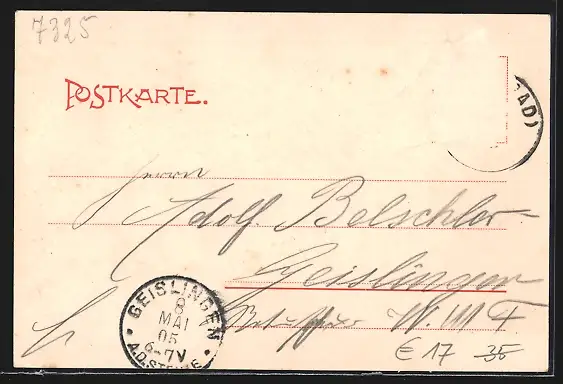 7325
POSTKARTE.
AD)
Herrn
Adolf Belschler
Geislingen
W.M.F.
GEISLINGEN
8
MAI
05
6-7V
A.D. STEIGE
€ 17 35